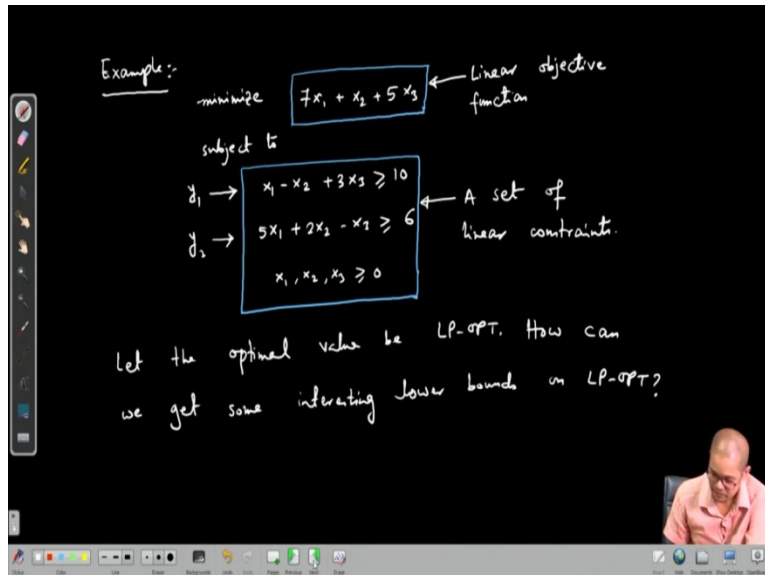 Example:-
minimize 7x₁ + x₂ + 5x₃ ← Linear objective
function
subject to
y₁ → x₁ - x₂ + 3x₃ ⩾ 10
y₂ → 5x₁ + 2x₂ - x₂ ⩾ 6 ← A set of
linear constraints.
x₁, x₂, x₃ ⩾ 0
Let the optimal value be LP-OPT. How can
we get some interesting lower bounds on LP-OPT?